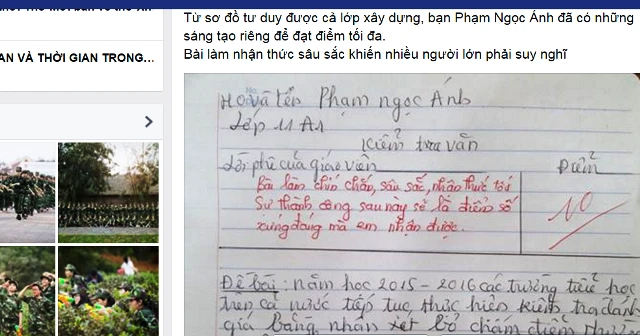 Từ sơ đồ tư duy được cả lớp xây dựng, bạn Phạm Ngọc Ánh đã có những
sáng tạo riêng để đạt điểm tối đa.
Bài làm nhận thức sâu sắc khiến nhiều người lớn phải suy nghĩ
AN VÀ THỜI GIAN TRONG...
Họ và tên Phạm ngọc Ánh
Lớp 11A1
Kiểm tra văn
Lời phê của giáo viên
Điểm
Bài làm chín chắn, sâu sắc, nhận thức tốt
Sự thành công sau này sẽ là điểm số
xứng đáng mà em nhận được.
10
Đề bài: năm học 2015 - 2016 các trường tiểu học
trên cả nước tiếp tục thực hiện kiểm tra đánh
giá bằng nhận xét bỏ chấm điểm